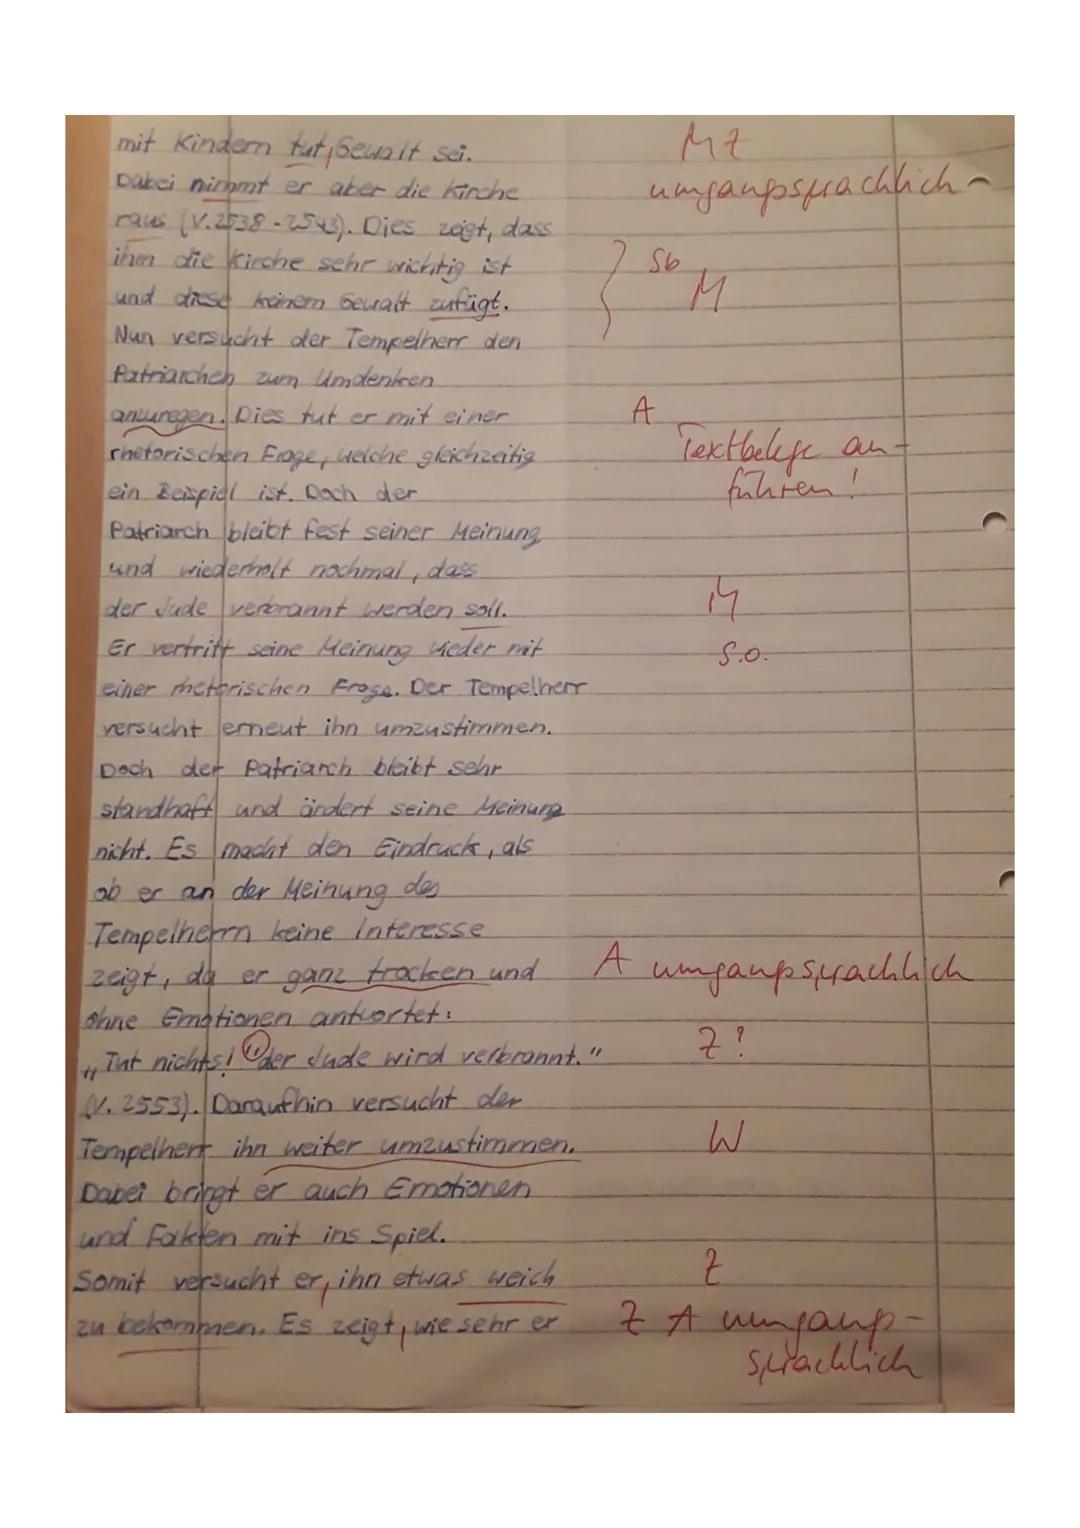 mit Kindern tut, Gewalt sei.
MZ
Dabei nimmt er aber die Kirche
umgangssprachlich
raus (V.2538-2543). Dies zeigt, dass
ihm die Kirche sehr wichtig ist
Sb
und diese keinem Gewalt zufügt.
M
Nun versucht der Tempelherr den
Patriarchen zum Umdenken
anzuregen. Dies tut er mit einer
A
rhetorischen Frage, welche gleichzeitig
Textbelege an-
ein Beispiel ist. Doch der
führen!
Patriarch bleibt fest seiner Meinung
und wiederholt nochmal, dass
der Jude verbrannt werden soll.
M
Er vertritt seine Meinung wieder mit
s.o.
einer rhetorischen Frage. Der Tempelherr
versucht erneut ihn umzustimmen.
Doch der Patriarch bleibt sehr
standhaft und ändert seine Meinung
nicht. Es macht den Eindruck, als
ob er an der Meinung des
Tempelherrn keine Interesse
zeigt, da er ganz trocken und
A umgangssprachlich
ohne Emotionen antwortet:
„Tut nichts! "der Jude wird verbrannt."
Z?
(V. 2553). Daraufhin versucht der
Tempelherr ihn weiter umzustimmen.
W
Dabei bringt er auch Emotionen
und Fakten mit ins Spiel.
Somit versucht er, ihn etwas weich
Z
zu bekommen. Es zeigt, wie sehr er
Z A umgang-
sprachlich